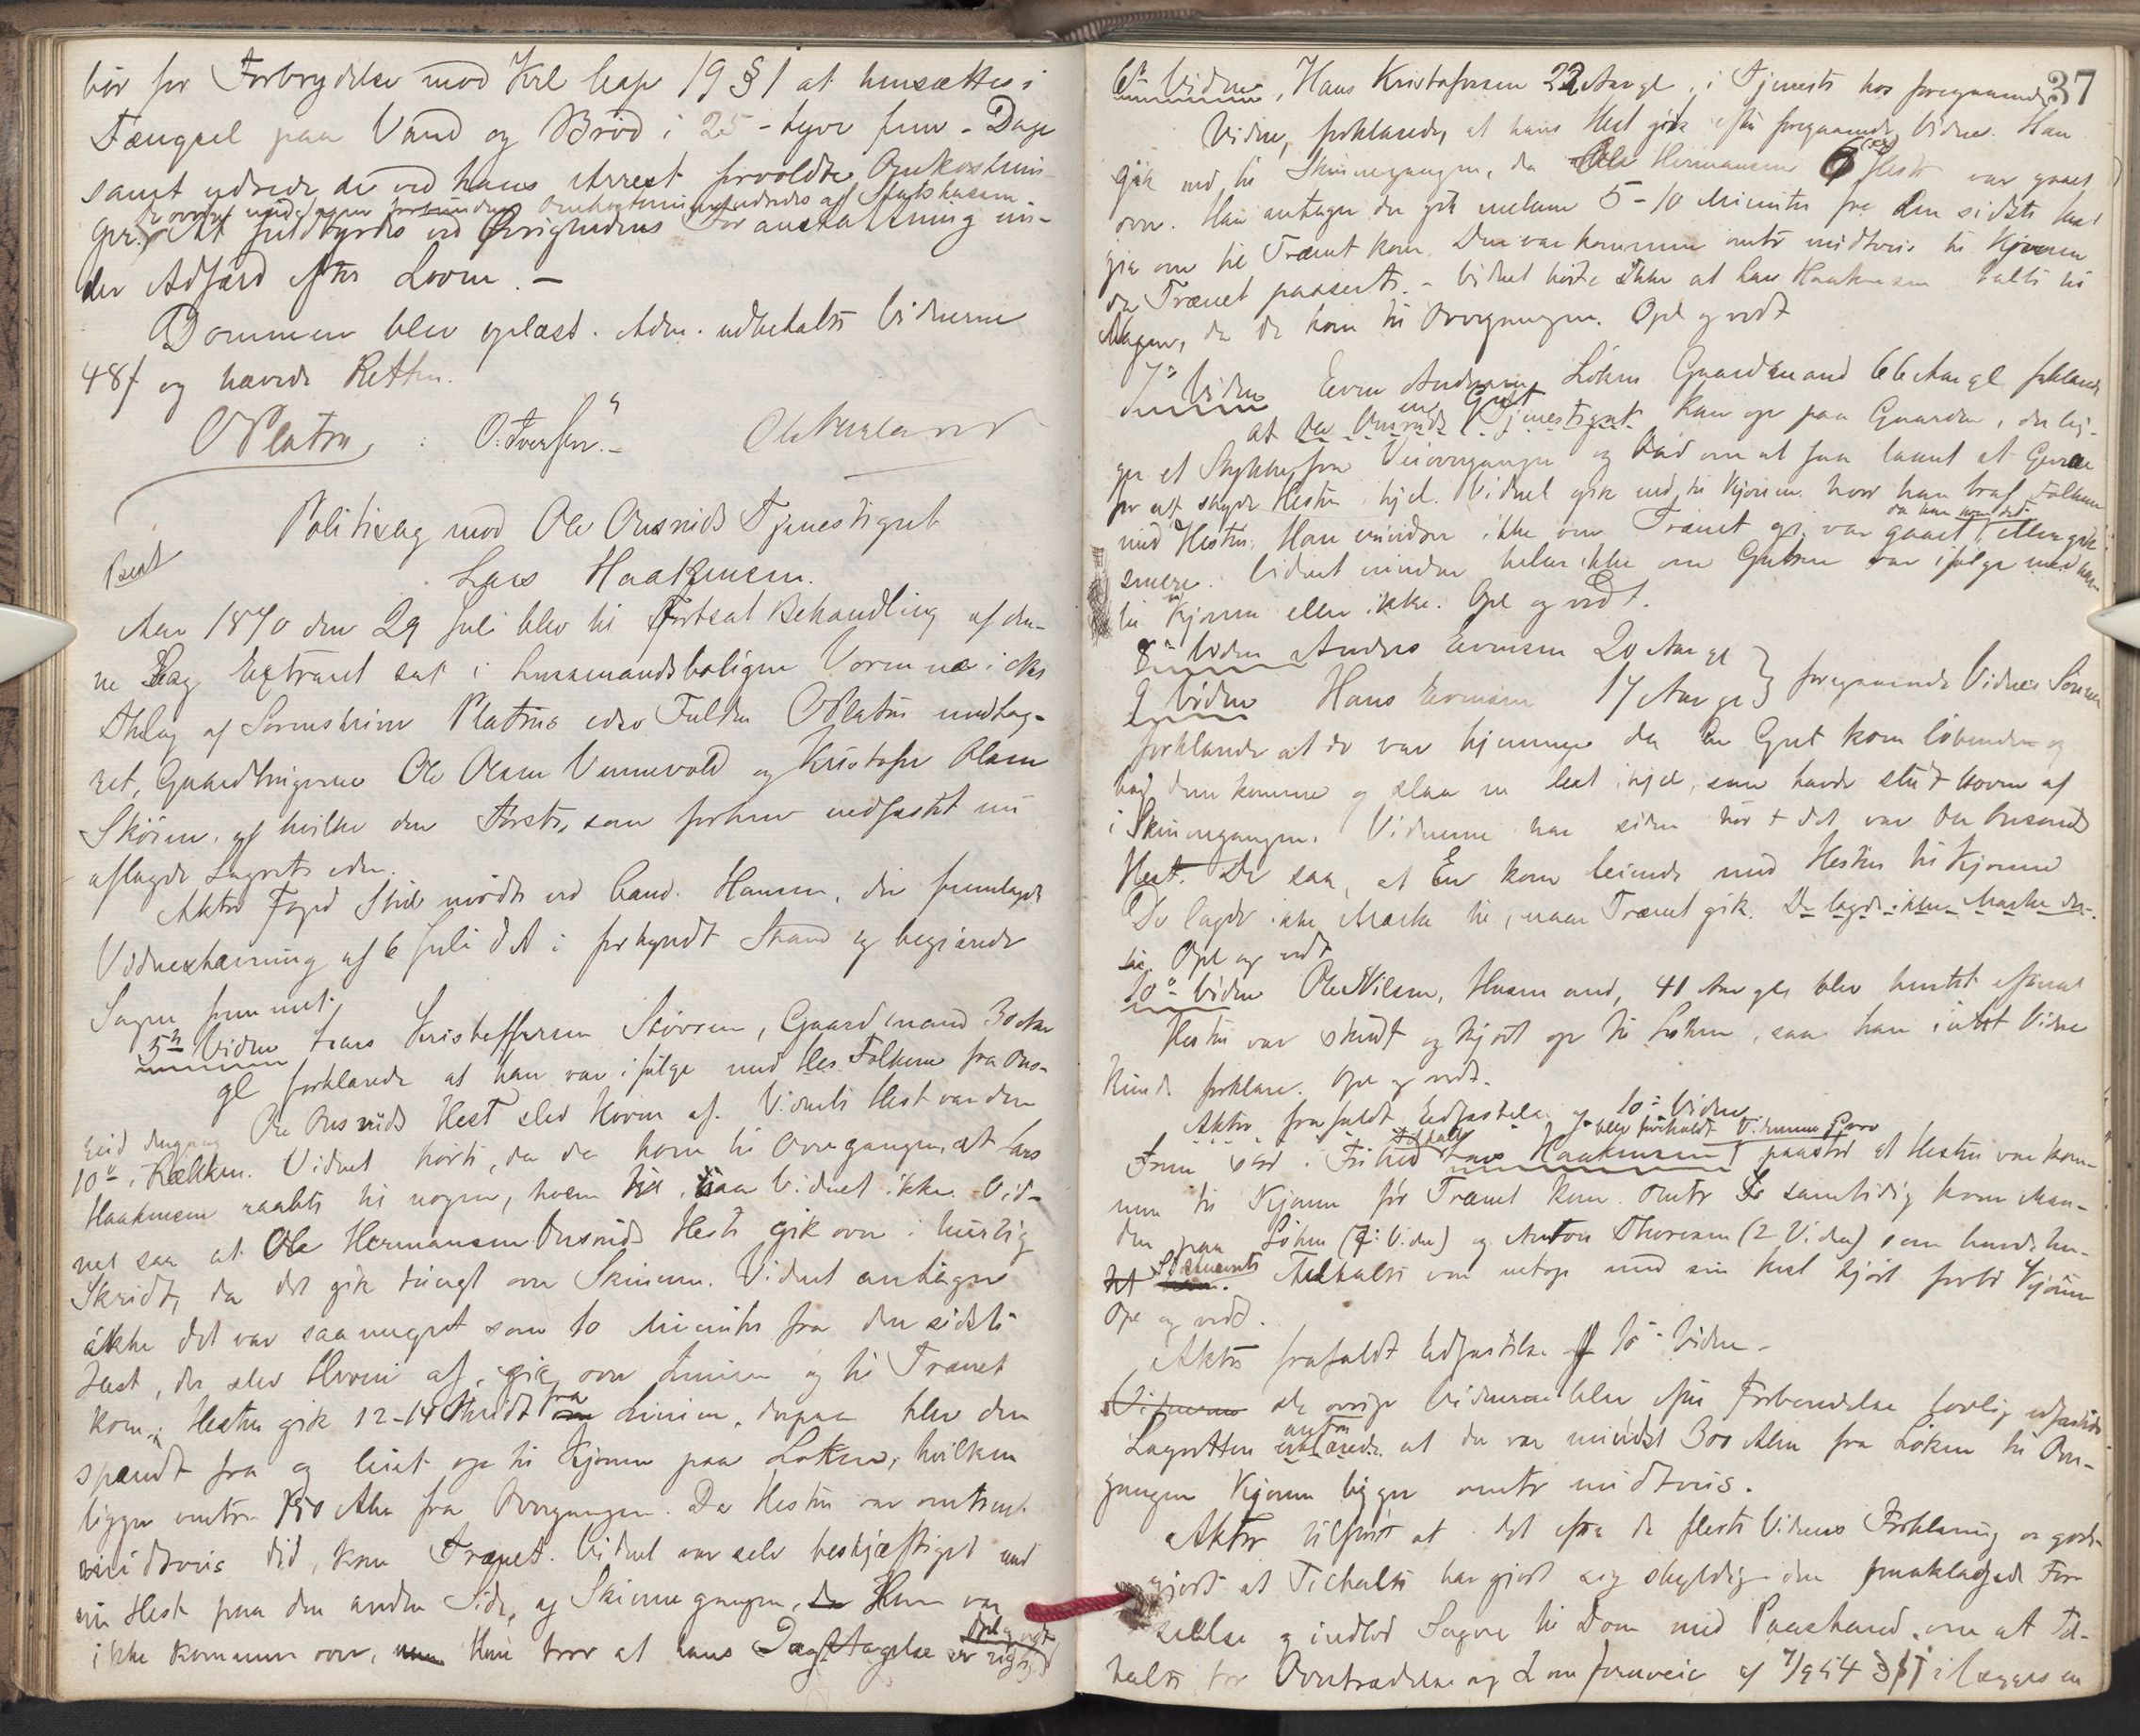 bør for Forbrydelse mod Krl Cap 19 § 1 at hensættes i
Fængsel paa Vand og Brød i 25 - tyve fem - Dage
samt udrede de ved hans Arrest forvoldte Omkostnin-
ger. De øvrige med Sagen forbundne Omkostninger udredes af Statskassen.
At fuldbyrdes ved Øvrighedens Foranstaltning un-
der Adfærd efter Loven. -
Dommen blev oplæst. Adm. udbetalte Vidnerne
48 f og hævede Retten.
OPlatou O. Iversen.
Politisag mod Ole Ousruds Tjenestegut
Lars Haakensen.
Aar 1870 den 29 Juli blev til fortsat Behandling af den-
ne Sag Extraret sat i Husmandsboligen Vormnæs i
Thelag af Sorenskriver Platous edsv Fuldm OPlatou med Lag-
ret, Gaardbrugerne Ole Olsen Vennevold og Kristofer Olsen
Skøien, af hvilke den Første, som forhen edfæstet nu
aflagde Lagrets eden.
Aktor Foged mødte ved Cand. Hansen, der fremlagde
Vidnestævning af 6 Juli d A i forkyndt Stand og begjærede
Sagen fremmet.
5te Vidne Lars Kristoffersen Skøyen, Gaardmand 30 Aar
gl forklarede at han var i følge med Ols Folkene fra Ous-
rud dengang Ole Ousruds Hest sled Hoven af. Vidnets Hest var den
10de i Rækken. Vidnet hørte, da de kom til Overgangen, at Lars
Haakensen raabte til nogen, hvem saa Vidnet ikke. Vid-
net saa at Ole Hermansen Ousruds Hest gik over i hurtig
Skridt, da det gik tungt over Skinnen. Vidnet antager
ikke det var saa meget som 10 Minuter fra den sidste
Hest, der sled Hoven af, gik over Linien og til Trænet
kom. Hesten gik 12-14 Skridt fra Linien, derpaa blev den
spændt fra og leiet op til Kjonne paa Løken, hvilken
ligger omtr 150 Alen fra Overgangen. Da Hesten var omtrent
midtveis did, kom Trænet. Vidnet var selv beskjæftiget med
sin Hest paa den anden Side af Skinnegangen, Han var
ikke kommen over, Han tror at hans Iagttagelse er rigtig. Opl og vedt
37
6te Vidne, Hans Kristofersen 22 Aar gl, i Tjeneste hos foregaaende
Vidne, forklarede, at hans Hest gik efter foregaaende Vidnes. Han
gik ned til Skinnegangen, da Ole Hermansens 6 Heste var gaaet
over. Han antager der gik mellem 5-10 Minuter fra den sidste Hest
gik over til Trænet kom. Den var kommen omtr midtveis til Kjonnen
da Trænet passerte. - Vidnet hørte ikke at Lars Haakensen talte til
Nogen, da de kom til Overgangen. Opl og vedt
7de Vidne Even Andersen Løken Gaardmand 66 Aar gl forklarede
at en Gut kom op paa Gaarden, der lig-
ger et Stykke fra Veiovergangen og bad om at faa laant et Gevær
for at skyde Hesten ihjel. Vidnet gik ned til Kjonnen hvor han traf Folkene
med Hesten. Han mindes ikke om Trænet var gaaet, da han kom did
senere. Vidnet mindes heller ikke om Gutten var ifølge med ham
til Kjonnen eller ikke. Opl og vedt.
8de Vidne Anders Evensen 20 Aar gl
9 Vidne Hans Evensen 17 Aar gl } foregaaende Vidnes Sønner
forklarede at de var hjemme da en Gut kom løbende og
bad dem komme og slaa en Hest ihjel, som havde slidt Hoven af
i Skinnegangen. Vidnerne har siden hørt det var Ole Ousruds
Hest. De saa, at En kom leiende med Hesten til Kjonne
De lagde ikke Mærke til, naar Trænet gik.
Opl og vedt
10de Vidne Ole Nilsen, Husmand, 41 Aar gl blev hentet efterat
Hesten var skudt og kjørt op til Løken, saa han intet Vidne
kunde forklare. Opl og vedt.
Aktor frafaldt Edfæstelse af 10de Vidne
Frem stod i Frihed Tiltalte Lars Haakensen, blev foreholdt Vidnernes Prov paastod at Hesten var kom-
men til Kjonnen før Trænet kom. Omtr samtidig kom Man-
den paa Løken (7de Vidne) og Anton Thoresen (2 Vidne) som havde hen-
tet Tiltalte var netop med sin Hest kjørt forbi Kjønne
Opl og vedt.
Aktor frafaldt Edfæstelse af 10de Vidne -
de øvrige Vidnerne blev efter Forberedelse lovlig edfæstede
Lagretten antog at der var mindst 300 Alen fra Løken til Over-
gangen Kjonnen ligger omtr midtveis.
Aktor tilførte at det efter de fleste Vidners Forklaring er godt-
gjort at Tiltalte har gjort sig skyldig i den paaklagede For-
seelse og indlod Sagen til Dom med Paastand om at Til-
talte for Overtrædelse af Lov om Jernveie af 7/9 54 § 11 ilægges en